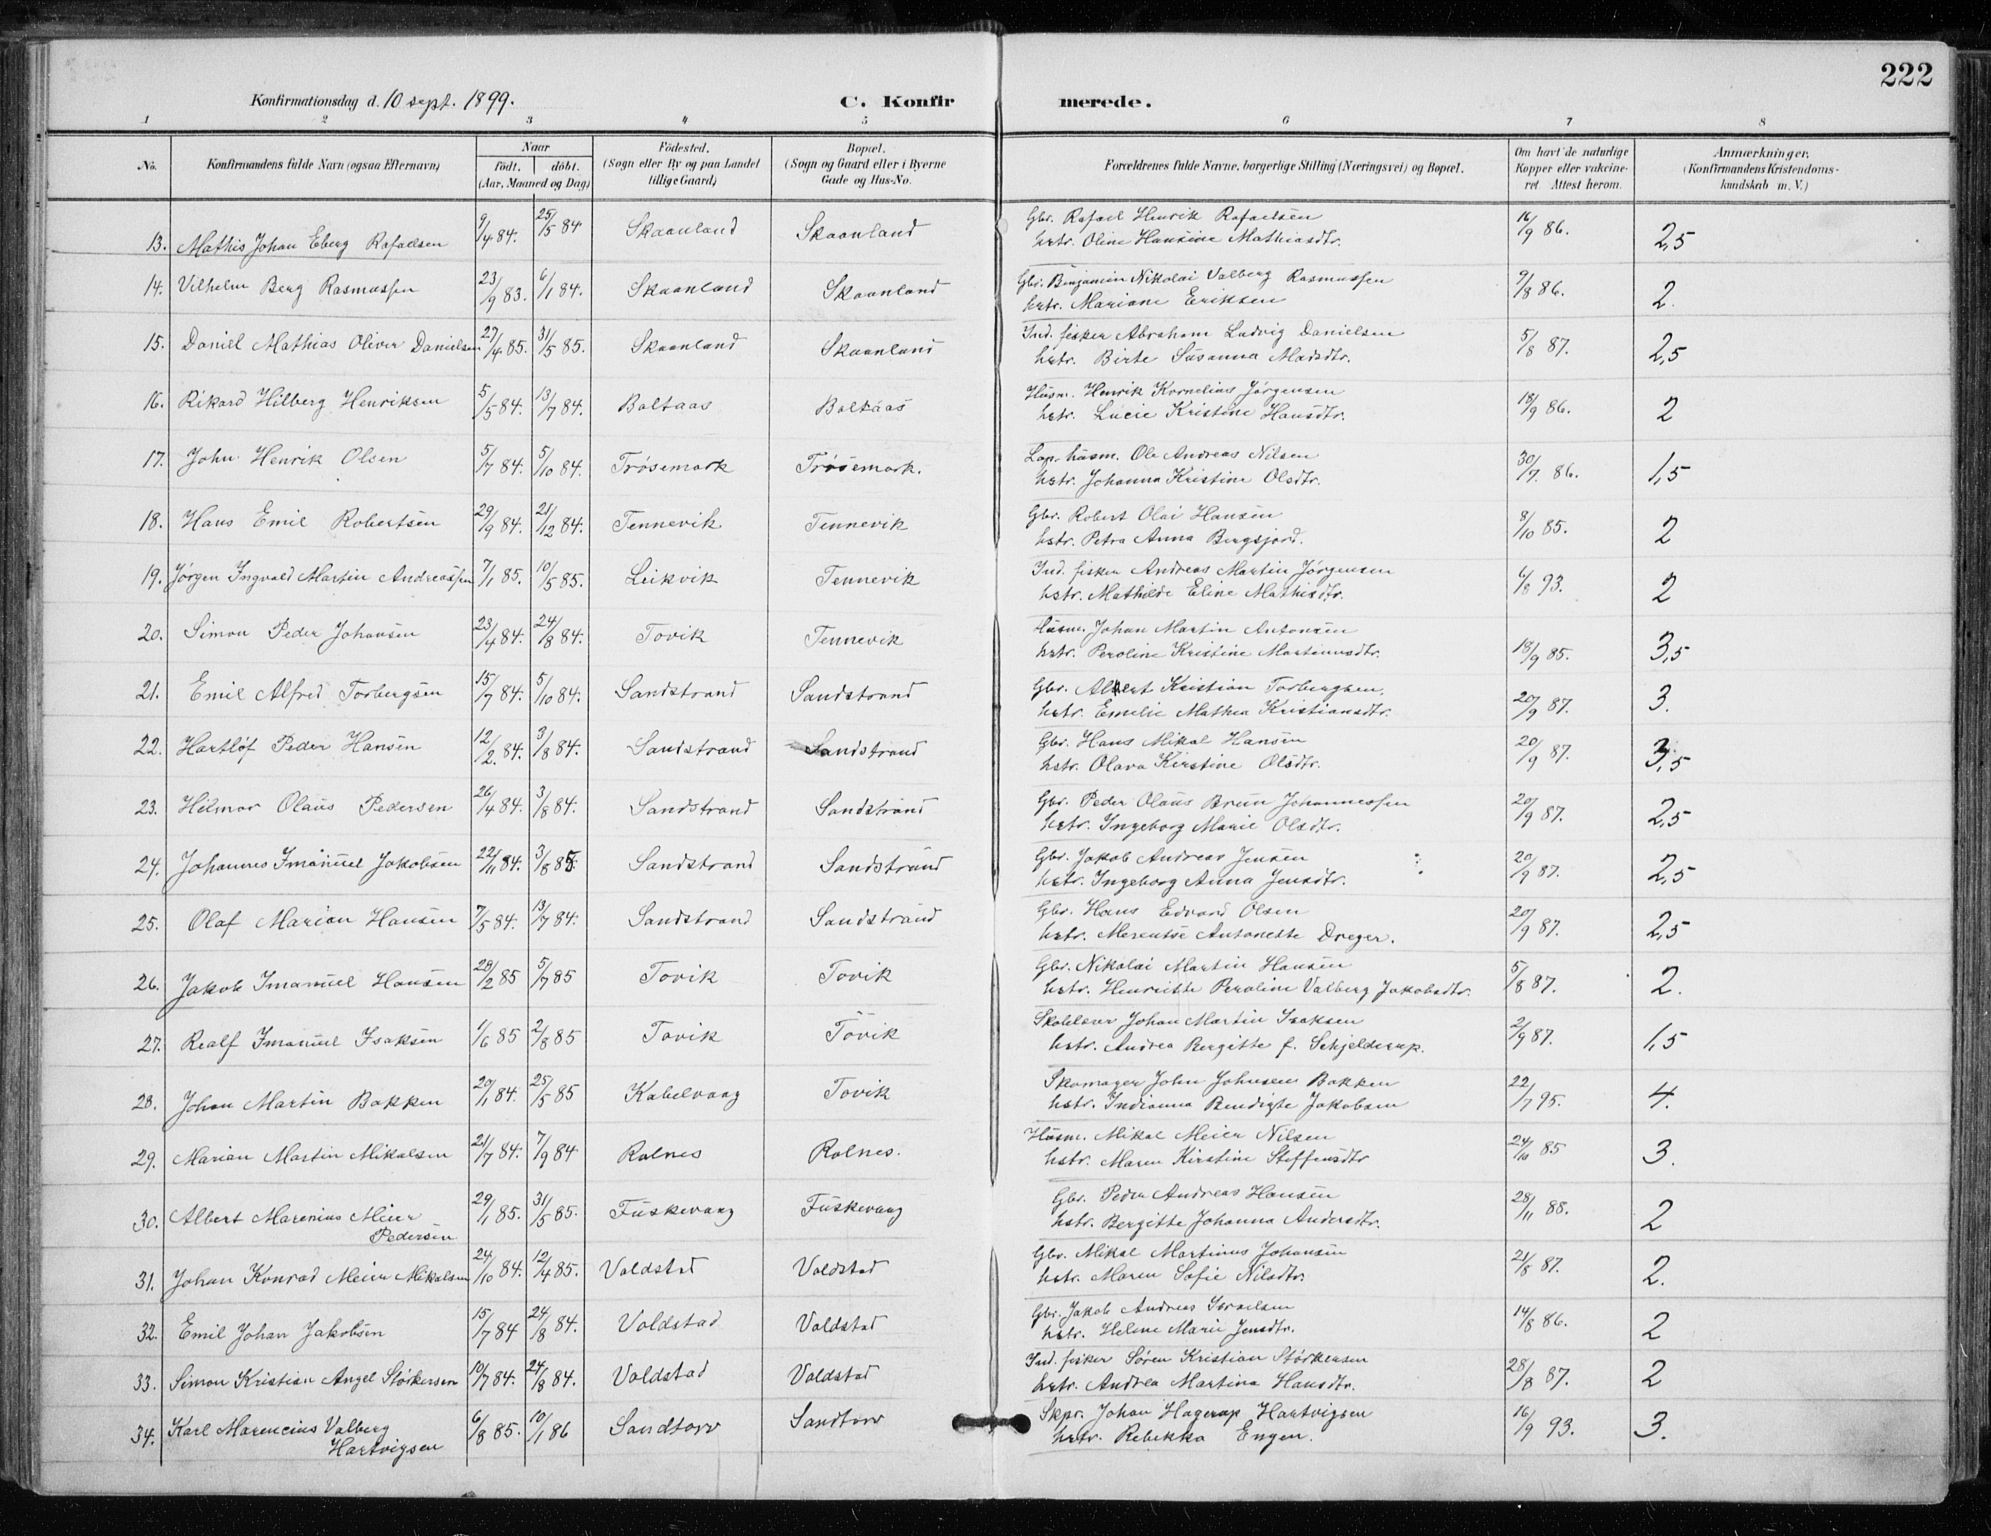 222
Konfirmationsdag d. 10 sept. 1899.
C. Konfirmerede.
1 2 3 4 5 6 7 8
No. Konfirmandens fulde Navn (ogsaa Efternavn) Naar födt. döbt. (Aar, Maaned og Dag) Födested. (Sogn eller By og paa Landet tillige Gaard) Bopæl. (Sogn og Gaard eller i Byerne Gade og Hus-No. Forældrenes fulde Navne, borgerlige Stilling (Næringsvei) og Bopæl. Om havt de naturlige Kopper eller vakcineret. Attest herom. Anmærkninger, (Konfirmandens Kristendomskundskab m. V.)
13. Mathis Johan Eberg Rafaelsen 9/4 84. 25/5 84 Skaanland Skaanland Gbr. Rafael Henrik Rafaelsen 16/9 86. 2,5
hstr. Oline Hansine Mathiasdtr.
14. Vilhelm Berg Rasmussen 23/9 83. 6/1 84. Skaanland Skaanland Gbr. Benjamin Nikolai Valberg Rasmussen 9/8 86. 2.
hstr. Mariane Eriksen
15. Daniel Mathias Oliver Danielsen 27/4 85. 31/5 85. Skaanland Skaanland Ind. fisker Abraham Ludvig Danielsen 5/8 87. 2,5
hstr. Birte Susanna Madsdtr.
16. Rikard Hilberg Henriksen 5/5 84. 13/7 84. Boltaas Boltaas Husm. Henrik Kornelius Jørgensen 18/9 86. 2
hstr. Lucie Kristine Hansdtr.
17. John Henrik Olsen 5/7 84. 5/10 84. Trøsemark Trøsemark. Lap. husm. Ole Andreas Nilsen 30/7 86. 1,5
hstr. Johanna Kristine Olsdtr.
18. Hans Emil Robertsen 29/9 84. 21/12 84. Tennevik Tennevik Gbr. Robert Olai Hansen 8/10 85. 2
hstr. Petra Anna Bergsjord.
19. Jørgen Ingvald Martin Andreassen 7/1 85. 10/5 85. Leikvik Tennevik Ind. fisker Andreas Martin Jørgensen 6/8 93. 2
hstr. Mathilde Eline Mathisdtr.
20. Simon Peder Johansen 23/4 84. 24/8 84. Tovik Tennevik Husm. Johan Martin Antonsen 18/9 85. 3,5
hstr. Peroline Kristine Martinusdtr.
21. Emil Alfred Torbergsen 15/7 84. 5/10 84. Sandstrand Sandstrand Gbr. Albert Kristian Torbergsen. 20/9 87. 3.
hstr. Emelie Mathea Kristiansdtr.
22. Hartløf Peder Hansen 12/2. 84. 3/8 84. Sandstrand Sandstrand Gbr. Hans Mikal Hansen 20/9 87. 3,5
hstr. Olava Kirstine Olsdtr.
23. Hilmar Olaus Pedersen 26/4 84. 3/8 84. Sandstrand Sandstrand Gbr. Peder Olaus Bruun Johannessen 20/9 87. 2,5
hstr. Ingeborg Marie Olsdtr.
24. Johannes Imanuel Jakobsen 22/11 84. 3/8 85. Sandstrand Sandstrand Gbr. Jakob Andreas Jensen 20/9 87. 2,5
hstr. Ingeborg Anna Jensdtr.
25. Olaf Marian Hansen 7/5 84. 13/7 84. Sandstrand Sandstrand Gbr. Hans Edvard Olsen 20/9 87. 2,5
hstr. Merentse Antonette Dreyer.
26. Jakob Imanuel Hansen 28/2 85 5/7 85 Tovik Tovik Gbr. Nikolai Martin Hansen 5/8 87. 2.
hstr. Henriette Peroline Valberg Jakobsdtr.
27. Realf Imanuel Isaksen 1/6 85 2/8 85 Tovik Tovik Skolelærer Johan Martin Isaksen 2/9 87. 1,5
hstr. Andrea Bergitte f. Schjelderup.
28. Johan Martin Bakken 20/1 84. 25/5 85 Kabelvaag Tovik Skomager John Johnsen Bakken 22/7 95. 4.
hstr. Indianna Bendigte Jakobsen
29. Marian Martin Mikalsen 21/7 84. 7/9 84 Rolnes Rolnes. Husm. Mikal Meier Nilsen 24/10 85 3.
hstr. Maren Kirstine Steffensdtr
30. Albert Marenius Meier 29/1 85. 31/5 85. Fuskevaag Fuskevaag Gbr. Peder Andreas Hansen 28/11 88. 2
Pedersen hstr. Bergitte Johanna Andersdtr.
31. Johan Konrad Meier Mikalsen 24/10 84. 12/4 85. Voldstad Voldstad Gbr. Mikal Martinus Johansen 21/8 87. 2.
hstr. Maren Sofie Nilsdtr.
32. Emil Johan Jakobsen 15/7 84 24/8 84. Voldstad Voldstad Gbr. Jakob Andreas Israelsen 14/8 86. 2
hstr. Helene Marie Jensdtr.
33. Simon Kristian Angel Størkersen 10/7 84. 24/8 84. Voldstad Voldstad Ind. fisker Søren Kristian Størkersen 28/8 87. 2
hstr. Andrea Martina Hansdtr.
34. Karl Marencius Valberg 6/8 85. 10/1 86 Sandtorv Sandtorv Skpr. Johan Hagerup Hartvigsen 16/9 93. 3.
Hartvigsen hstr. Rebekka Engen.